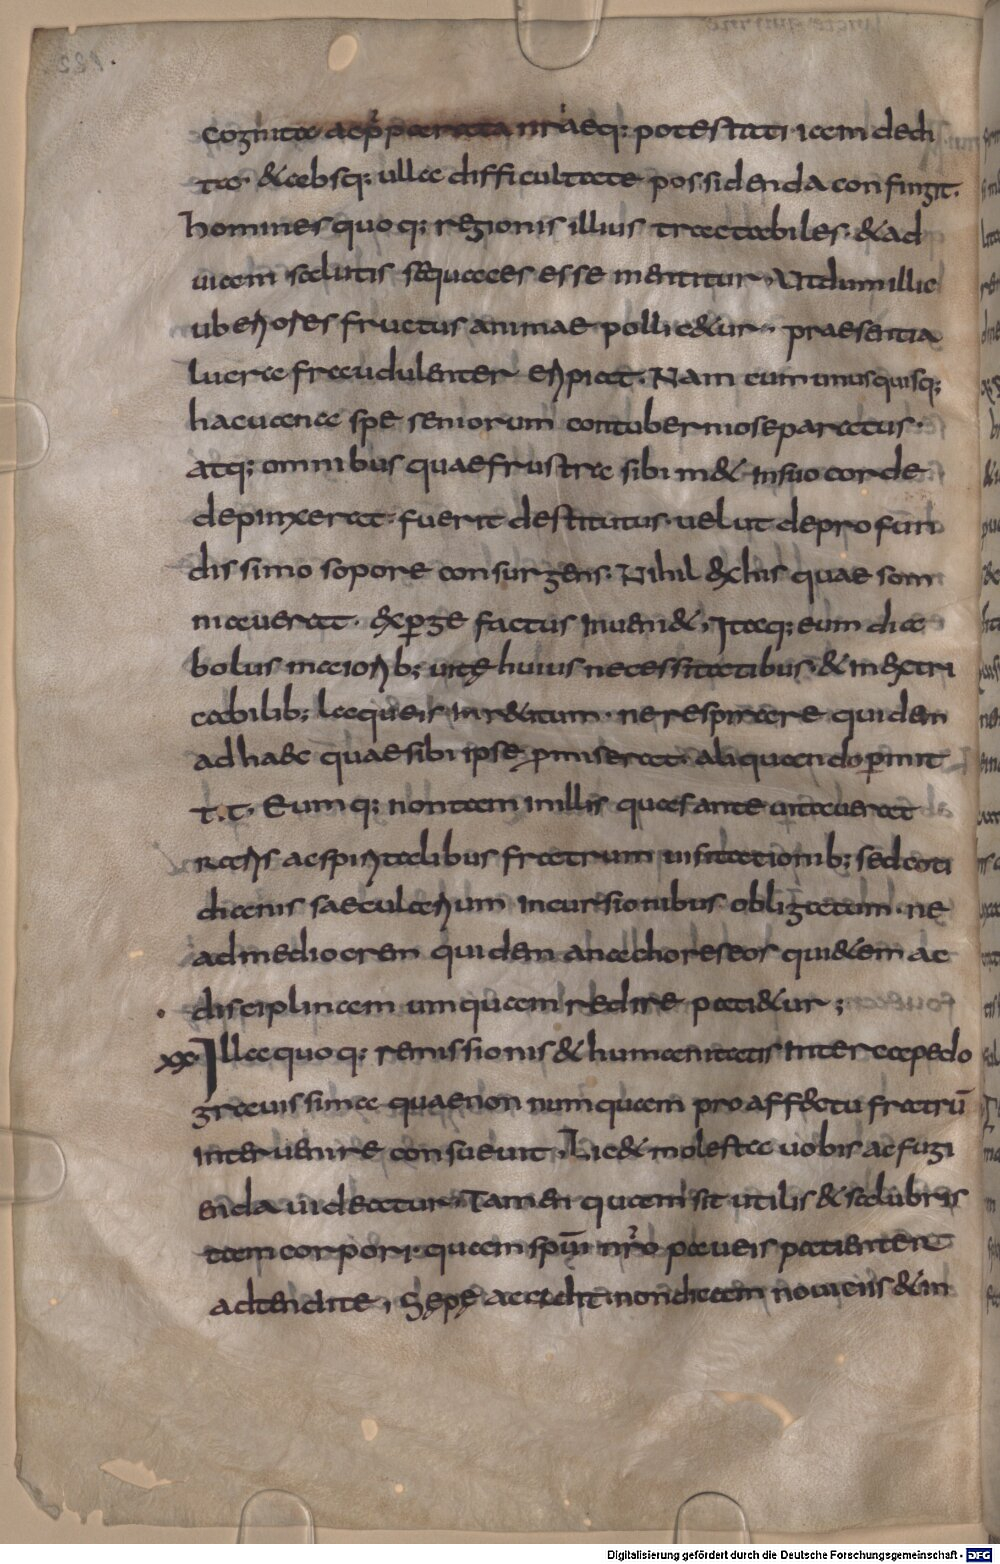 cognita acp̄parata nr̄aeq; potestati iam dedi
ta. &absq; ulla difficultate possidenda confingit.
homines quoq; regionis illius tractabiles. &ad
uiam salutis sequaces esse mentitur. Utdumillic
uberiores fructus animae pollic&ur. praesentia
lucra fraudulenter eripiat. Nam cum unusquisq;
hacuana spe seniorum contubernioseparatus.
atq; omnibus quaefrustra sibi in& insuo corde
depinxerat. fuerit destitutus. uelut deprofun
dissimo sopore consurgens. Nihil &xhis quae som
niauerat. &xperge factus inueni&. Itaq; eum dia
bolus maiorib; uitę huius necessitatibus. & in&xtri
cabilib; laqueis inr&itum. ne respirare quidem
ad haec quaesibi ipse promiserat. aliquando permit
t.t. Eumq; nontam inillis quas ante uitauerat
raris acspiritalibus fratrum uisitationib; sed coti
dianis saecularium incursionibus obligatum. ne
admediocrem quidem anachoreseos qui&em ac
disciplinam umquam redire pati&ur;
xx Illaquoq; remissionis & humanitatis intercapedo
grauissima quaenon numquam pro aff&ctu fratrū
interuenire consueuit. Lic& molesta uobis ac fugi
enda uideatur. Tamen quam sit utilis & salubris
tam corpori. quam spūi nr̄o paucis patientere
adtendite, Sępe accidit nondicam nouiciis &in
Digitalisierung gefördert durch die Deutsche Forschungsgemeinschaft - DFG